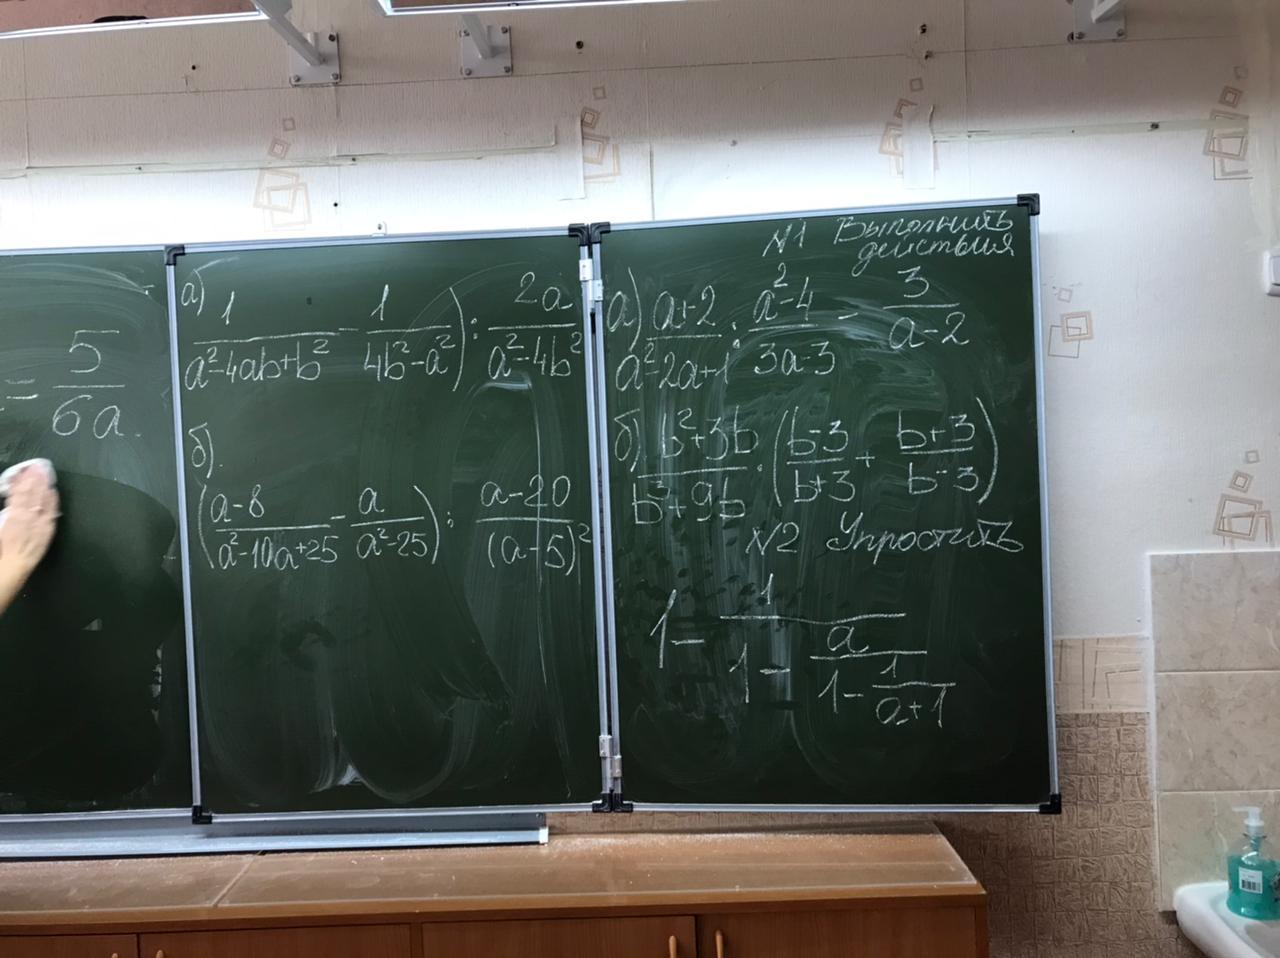 = 5/6a.
а)
1/(a²-4ab+b²) - 1/(4b²-a²)) : 2a/(a²-4b²)
б).
((a-8)/(a²-10a+25) - a/(a²-25)) : (a-20)/(a-5)²
№1 Выполнить
действия
а) (a+2)/(a²-2a+1) : (a²-4)/(3a-3) - 3/(a-2)
б) (b²+3b)/(b³+9b) · ((b-3)/(b+3) + (b+3)/(b-3))
№2 Упростить
1 - 1/(1 - a/(1 - 1/(a+1)))